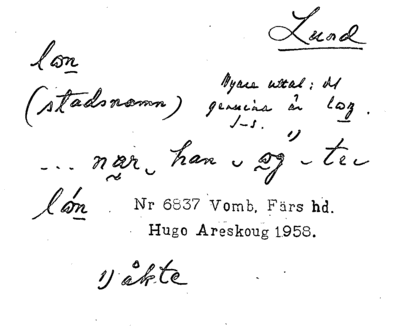 Lund
lon
(stadsnamn)
Nyare uttal; det
genuina är log.
J-s.
... nær han og 1) te
lón
Nr 6837 Vomb, Färs hd.
Hugo Areskoug 1958.
1) åkte